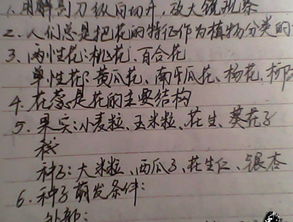 1.用解剖刀纵向切开，放大镜观察
2.人们总是把花的特征作为植物分类的
3、两性花：桃花、百合花
单性花：黄瓜花、南瓜花、杨花、柳
4.花蕊是花的主要结构
5.果实：小麦粒、玉米粒、花生、葵花子
种子：大米粒、西瓜子、花生仁、银杏
6.种子萌发条件：
外部：